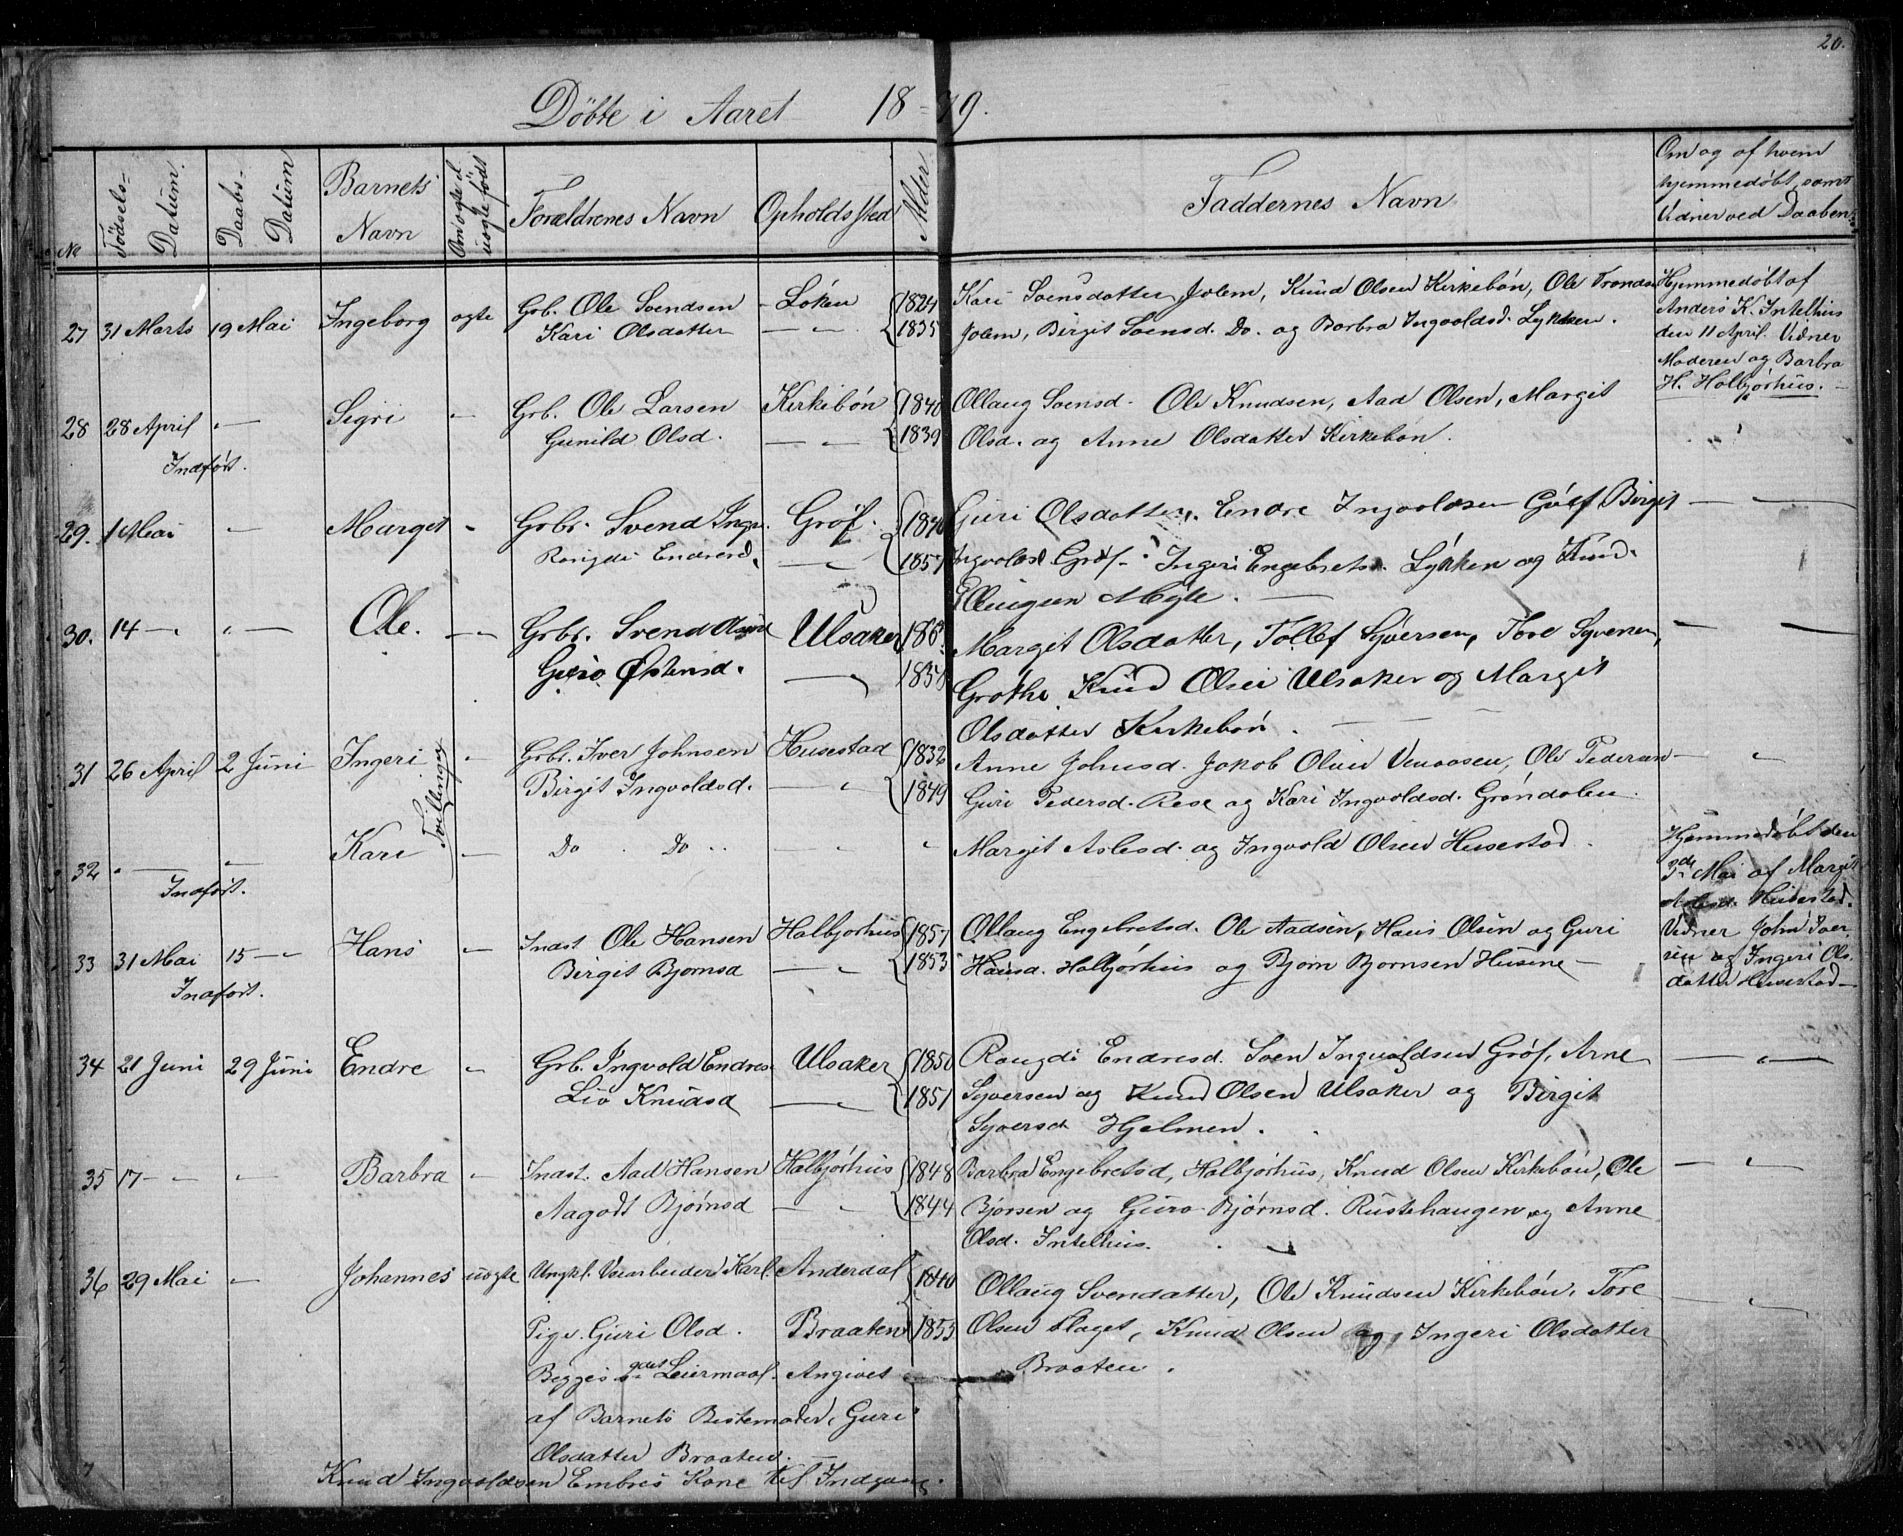 20.
Döbte i Aaret 18-79.
No
Fødsels-Datum.
Daabs-Datum
Barnets Navn
Om ægte el. uægte født
Forældrenes Navn
Opholdssted
Alder
Faddernes Navn
Om og af hvem hjemmedøbt samt Vidner ved Daaben.
27 31 Marts 19 Mai Ingeborg ægte Grb. Ole Svendsen Løken 1824 Kari Svensdatter Jolem, Knud Olsen Kirkebøn, Ole Trondsen
Kari Olsdatter — 1835 Jolem, Birgit Svensd. Do. og Barbra Ingvoldsd. Lykken.
Hjemmedøbt af
Anders K. Intelhus
den 11 April. Vidner
Moderen og Barbra
H. Halbjørhus.
28 28 April — Sigri — Grb. Ole Larsen Kirkebøn 1840 Ollaug Svensd. Ole Knudsen, Aad Olsen, Margit
Gunild Olsd. — 1839 Olsd. og Anne Olsdatter Kirkebøn.
Indført.
29. 1 Mai — Marget — Grbr. Svend Ingv. Grøf. 1846 Guri Olsdatter, Endre Ingvoldsen Grøf Birgit
Rangdi Endresd. — 1857 Ingvoldsd Grøf. Ingeri Engebretsd. Lykken og Knud
Ellingsen Møgle.
30. 14 — — Ole. — Grbr. Svend Ulsaker Margit Olsdatter, Tollef Syversen, Tore Syversen,
Guro Østensd. — 1858 Grøthe, Knud Olsen Ulsaker og Margit
Olsdatter Kirkebøn.
31 26 April 2 Juni Ingeri — Grbr. Iver Johnsen Husestad 1832 Anne Johnsd. Jakob Olsen Venaasen, Ole Pedersen
Tvillinger
Birgit Ingvoldsd. — 1849 Guri Pedersd. Rese og Kari Ingvoldsd. Grøndalen.
32 — Kari — Do Do — Margit Aslesd. og Ingvold Olsen Husestad.
Indført.
Hjemmedøbt den
3de Mai af Margit
Aslesd. Husestad.
Vidner John Iver-
sen og Ingeri Ols-
datter Husestad —
33 31 Mai 15 — Hans — Indst Ole Hansen Halbjørhus 1857 Ollaug Engebretsd. Ole Aadsen, Hans Olsen og Guri
Birgit Bjørnsd — 1853 Hansd. Halbjørhus og Bjørn Bjørnsen Husene —
Indført.
34 21 Juni 29 Juni Endre — Grb. Ingvold Endres. Ulsaker 1850 Rangdi Endresd. Sven Ingvoldsen Grøf, Arne
Liv Knudsd — 1851 Syversen og Knud Olsen Ulsaker og Birgit
Syversd Hjelmen.
35 17 — — Barbra — Indst. Aad Hansen Halbjørhus 1848 Barbra Engebretsd, Halbjørhus, Knud Olsen Kirkebøn, Ole
Aagodt Bjørnsd — 1844 Bjørsen og Guro Bjørnsd. Rustehaugen og Anne
Olsd. Intelhus.
36 29 Mai — Johannes uægte Ungkl. Veiarbeider Karl Anderdal 1840 Ollaug Svendatter, Ole Knudsen Kirkebøn, Tore
Pige. Guri Olsd. Braaten 1855 Olsen Flaget, Knud Olsen og Ingeri Olsdatter
Begges Leiermaal. Angivet Braaten.
af Barnets Bestemoder, Guri
Olsdatter Braaten.
Knud Ingvoldsen Embres Kone til Indgang.